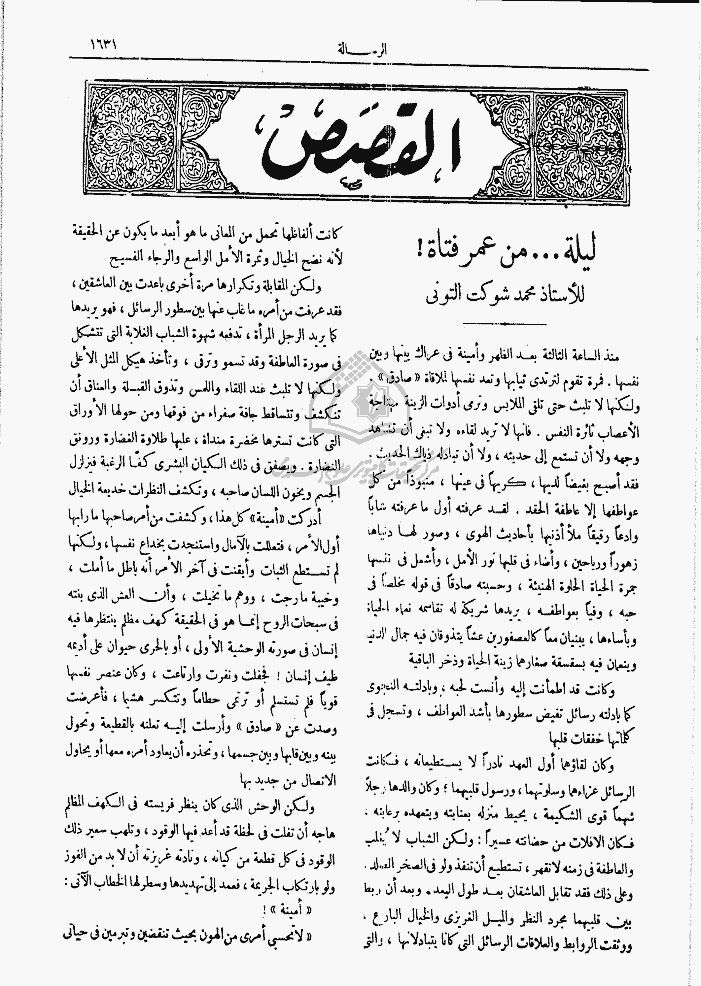 ١٦٣١
الرسالة
القصص
ليلة... من عمر فتاة!
للأستاذ محمد شوكت التونى
منذ الساعة الثالثة بعد الظهر وأمينة فى عراك بينها وبين
نفسها. فمرة تقوم لترتدى ثيابها وتعد نفسها لملاقاة «صادق».
ولكنها لا تلبث حتى تلقى الملابس وترمى أدوات الزينة مهتاجة
الأعصاب ثائرة النفس. فانها لا تريد لقاءه ولا تبغى أن تشاهد
وجهه ولا أن تستمع إلى حديثه، ولا أن تبادله ذياك الحديث.
فقد أصبح بغيضاً لديها، كريهاً فى عينها، منبوذاً من كل
عواطفها إلا عاطفة الحقد. لقد عرفته أول ما عرفته شاباً
وادعاً رقيقاً ملأ أذنيها بأحاديث الهوى، وصور لها دنياها
زهوراً ورياحين، وأضاء فى قلبها نور الأمل، وأشعل فى نفسها
جمرة الحياة الحلوة الهنيئة، وحسبته صادقاً فى قوله مخلصاً فى
حبه، وفياً بعواطفه، يريدها شريكة له تقاسمه نعماء الحياة
وبأساءها، يبنيان معاً كالعصفورين عشاً يتذوقان فيه جمال الدنيا
وينعمان فيه بسقسقة صغارهما زينة الحياة وذخر الباقية
وكانت قد اطمأنت إليه وأنست لحبه، وبادلته النجوى
كما بادلته رسائل تفيض سطورها بأشد العواطف، وتسجل فى
كلماتها خفقات قلبها
وكان لقاؤهما أول العهد نادراً لا يستطيعانه، فكانت
الرسائل عزاءهما وسلوتهما، ورسول قلبيهما؛ وكان والدها رجلاً
شهماً قوى الشكيمة، يحيط منزله بعنايته ويتعهده برعايته،
فكان الافلات من حضانته عسيراً: ولكن الشباب لا يُغلب
والعاطفة فى زمنه لا تقهر، تستطيع أن تنفذ ولو فى الصخر الصلد.
وعلى ذلك فقد تقابل العاشقان بعد طول البعد. وبعد أن ربط
بين قلبيهما مجرد النظر والميل الغريزى والخيال البارع،
ووثقت الروابط والعلاقات الرسائل التى كانا يتبادلانها، والتى
كانت ألفاظها تحمل من المعانى ما هو أبعد ما يكون عن الحقيقة
لأنه نضح الخيال وثمرة الأمل الواسع والرجاء الفسيح
ولكن المقابلة وتكرارها مرة أخرى باعدت بين العاشقين،
فقد عرفت من أمره ما غاب عنها بين سطور الرسائل، فهو يريدها
كما يريد الرجل المرأة، تدفعه شهوة الشباب الغلابة التى تتشكل
فى صورة العاطفة وقد تسمو وترقى، وتأخذ هيكل المثل الأعلى
ولكنها لا تلبث عند اللقاء واللمس وتذوق القبلة والعناق أن
تنكشف وتتساقط جافة صفراء من فوقها ومن حولها الأوراق
التى كانت تسترها مخضرة منداة، عليها طلاوة الغضارة ورونق
النضارة. ويصفق فى ذلك الكيان البشرى كفا الرغبة فيزلزل
الجسم ويخون اللسان صاحبه، وتكشف النظرات خديعة الخيال
أدركت «أمينة» كل هذا، وكشفت من أمر صاحبها ما رابها
أول الأمر، فتعللت بالآمال واستنجدت بخداع نفسها، ولكنها
لم تستطع الثبات وأيقنت فى آخر الأمر أنه باطل ما أملت،
وخيبة ما رجت، ووهم ما تخيلت، وأن العش الذى بنته
فى سبحات الروح إنما هو فى الحقيقة كهف مظلم ينتظرها فيه
إنسان فى صورته الوحشية الأولى، أو بالحرى حيوان على أديمه
طيف إنسان! فجفلت ونفرت وارتاعت، وكان عنصر نفسها
قوياً فلم تستسلم أو ترتمى حطاماً وتنكسر هشيما، فأعرضت
وصدت عن «صادق» وأرسلت إليه تعلنه بالقطيعة وتحول
بينه وبين قلبها وبين جسمها، وتحذره أن يعاود أمره معها أو يحاول
الاتصال من جديد بها
ولكن الوحش الذى كان ينظر فريسته فى الكهف المظلم
هاجه أن تفلت فى لحظة قد أعد فيها الوقود، وتلهب سعير ذلك
الوقود فى كل قطعة من كيانه، ونادته غريزته أن لا بد من الفوز
ولو بارتكاب الجريمة، فعمد إلى تهديدها وسطر لها الخطاب الآتى:
«أمينة»!
«لا تحسبى أمرى من الهون بحيث تنقضين وتبرمين فى حياتى